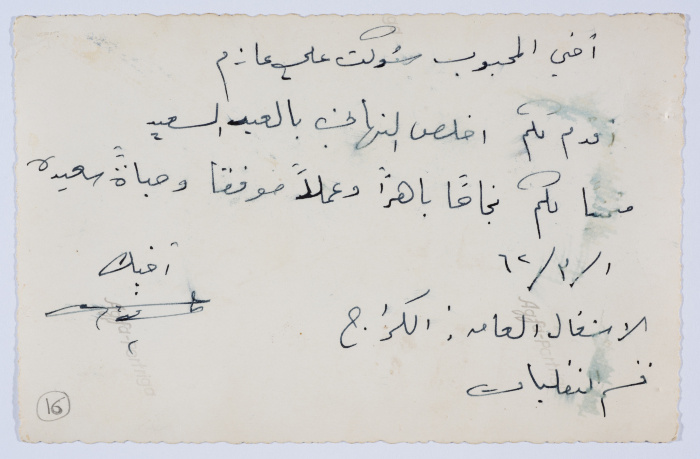 أخي المحبوب شوكت علي عازم
اقدم لكم اخلص التهاني بالعيد السعيد
متمنيا لكم نجاحًا باهرًا وعملاً موفقا وحياةً سعيده
١/٣/٦٢
أخيك
الاشغال العامه : الكراج
قسم النقليات
16